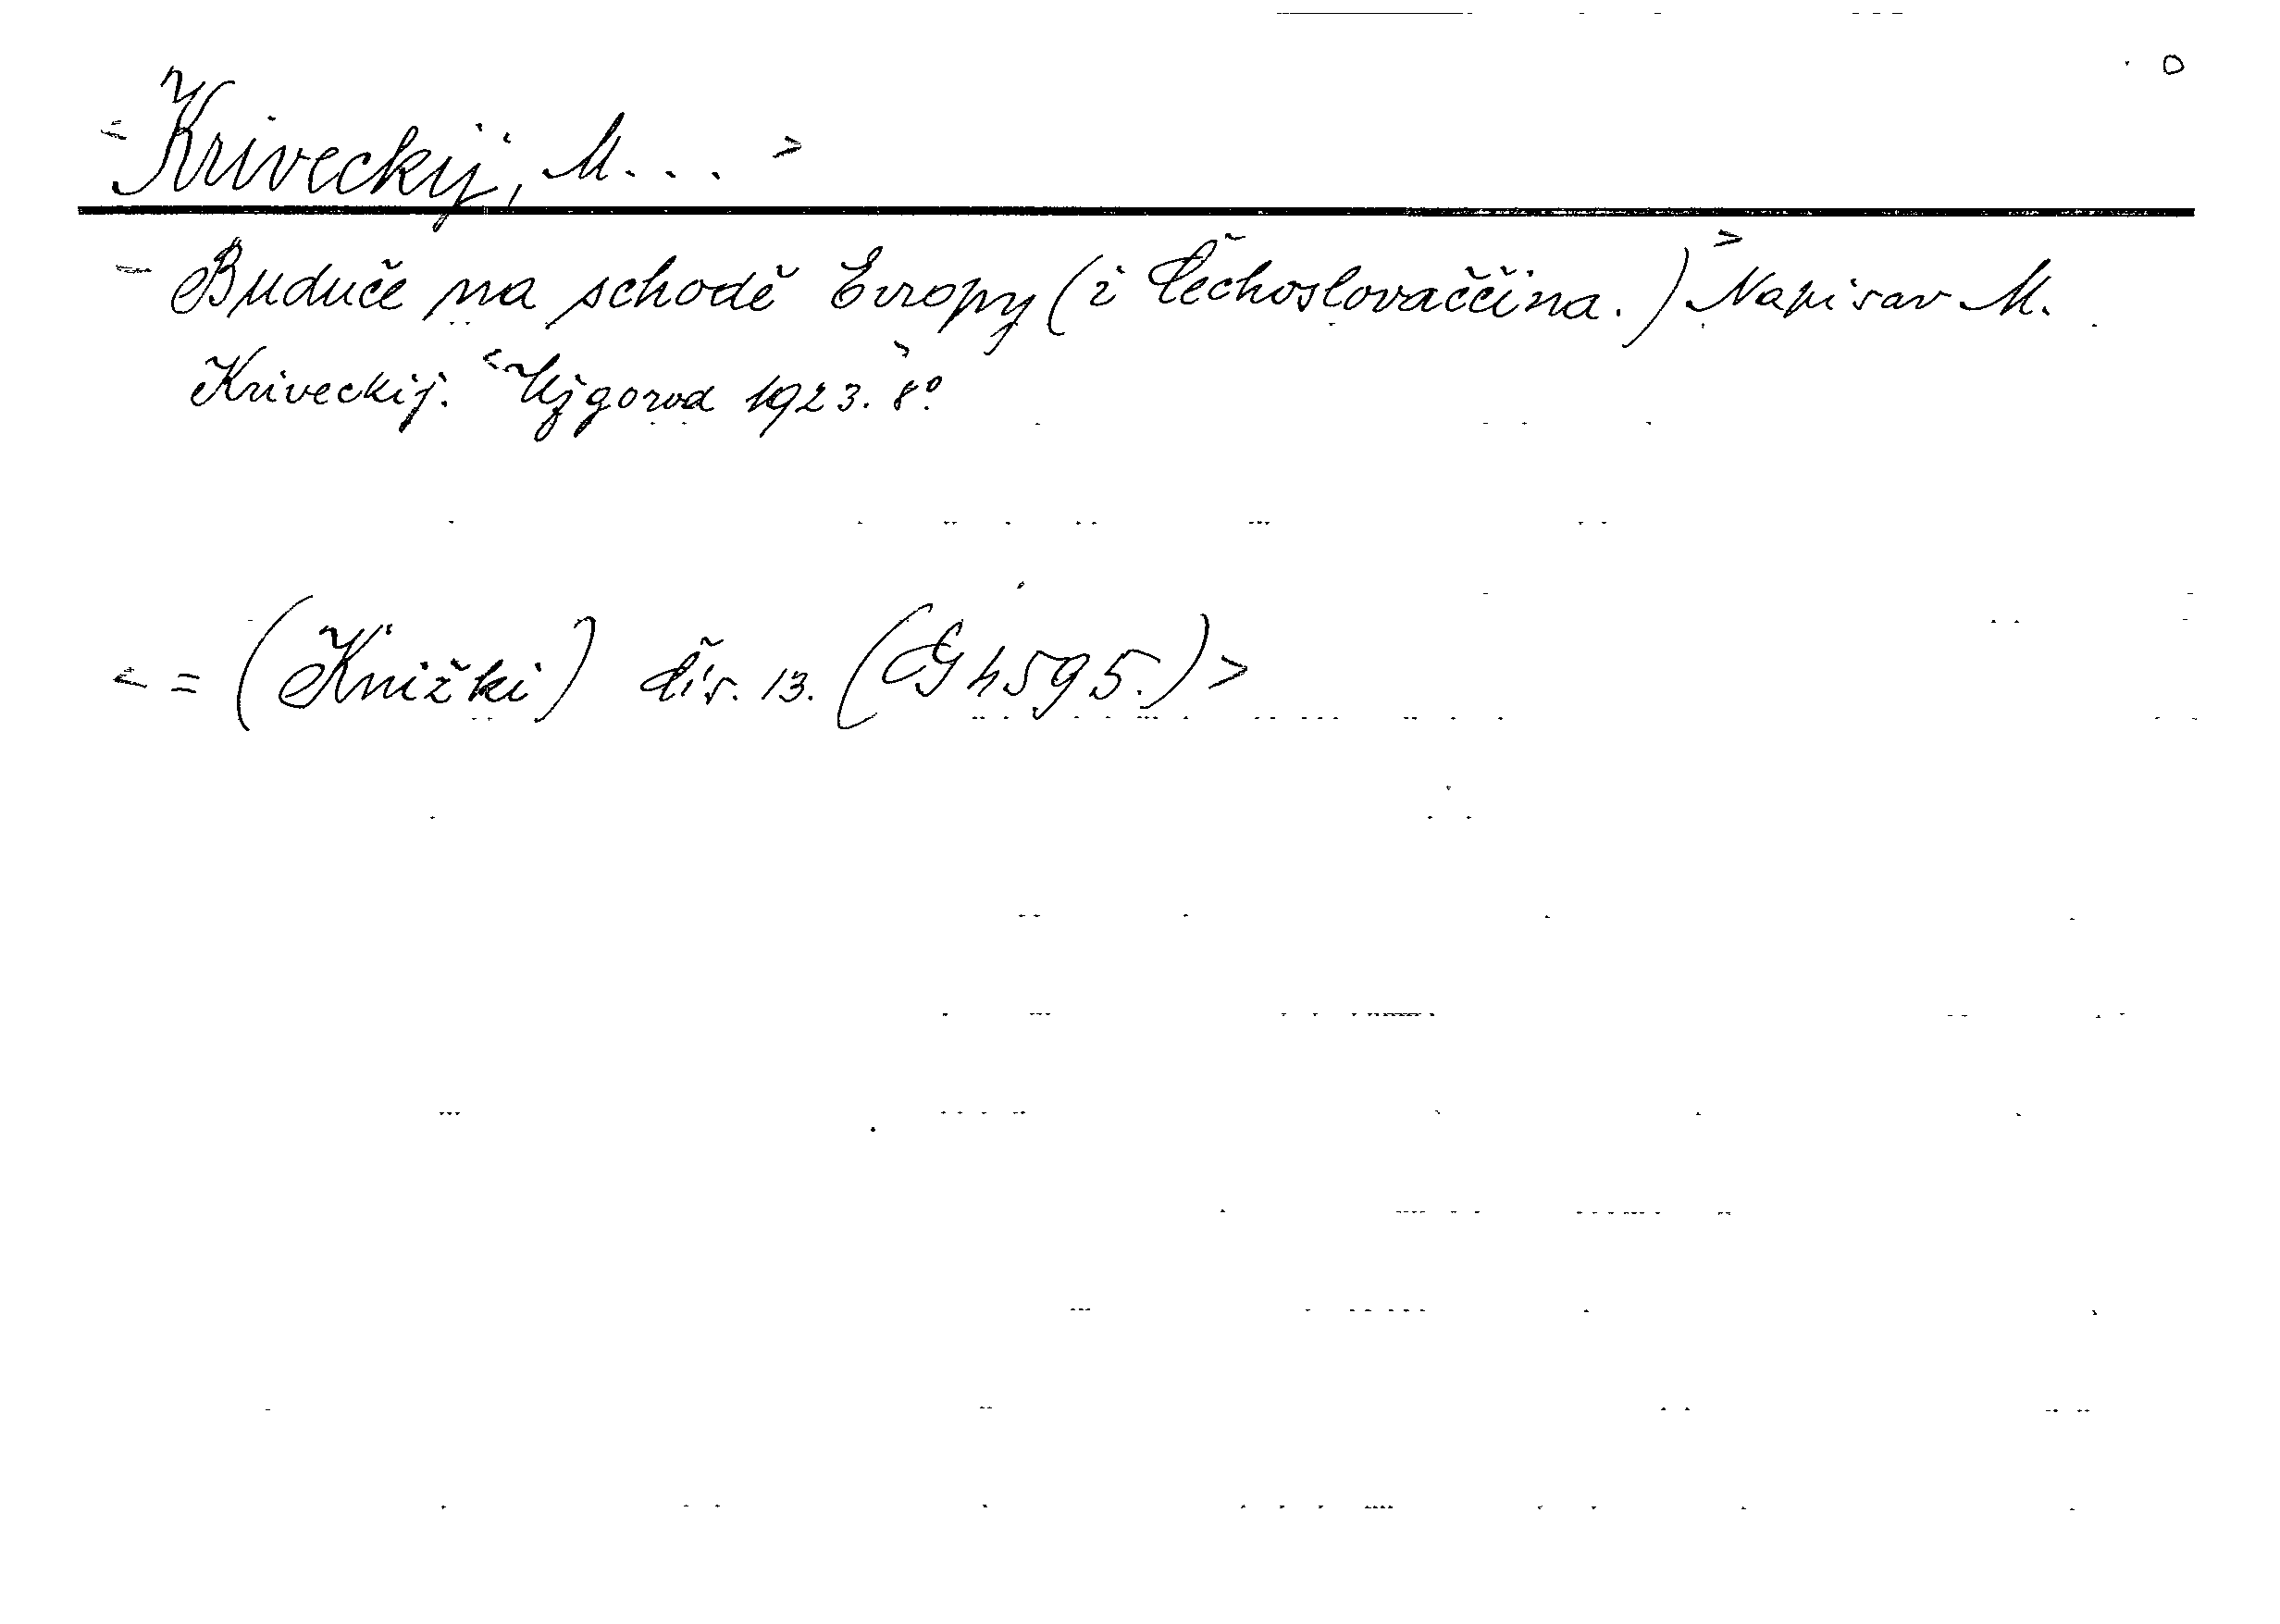 <Kriveckij, M...>
<Buduče na schodě Evropy (i Čechoslovaččina.)> Napisav M.
Kriveckij. <Užgorod 1923.> 8°.
<= (Knižki) čís. 13. (G 4595.)>